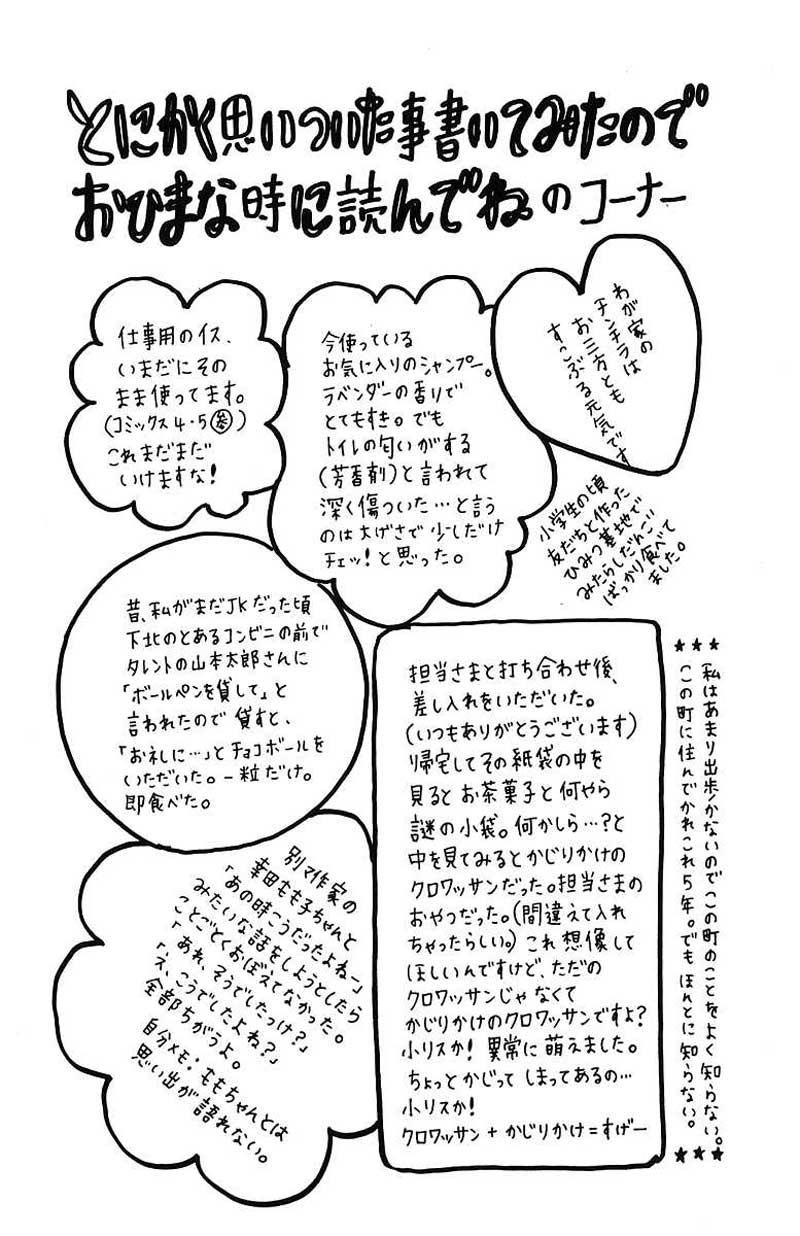 とにかく思いついた事書いてみたので
おひまな時に読んでね。のコーナー
わが家の
チンチラは
お三方とも
すこぶる元気です
今使っている
お気に入りのシャンプー。
ラベンダーの香りで
とてもすき。でも
トイレの匂いがする
(芳香剤)と言われて
深く傷ついた…と言う
のは大げさで少しだけ
チェッ!と思った。
仕事用のイス、
いまだにその
まま使ってます。
(コミックス4・5参)
これまだまだ
いけますな!
小学生の頃
友だちと作った
ひみつ基地で
みたらしだんご
ばっかり食べて
ました。
昔、私がまだJKだった頃
下北のとあるコンビニの前で
タレントの山本太郎さんに
「ボールペンを貸して」と
言われたので貸すと、
「お礼に…」とチョコボールを
いただいた。一粒だけ。
即食べた。
★★★
私はあまり出歩かないのでこの町のことをよく知らない。
この町に住んでかれこれ5年。でもほんとに知らない。
★★★
担当さまと打ち合わせ後、
差し入れをいただいた。
(いつもありがとうございます)
帰宅してその紙袋の中を
見るとお茶菓子と何やら
謎の小袋。何かしら…?と
中を見てみるとかじりかけの
クロワッサンだった。担当さまの
おやつだった。(間違えて入れ
ちゃったらしい。)これ想像して
ほしいんですけど、ただの
クロワッサンじゃなくて
かじりかけのクロワッサンですよ?
小リスか!異常に萌えました。
ちょっとかじってしまってあるの…
小リスか!
クロワッサン+かじりかけ=すげー
別マ作家の
幸田もも子ちゃんと
「あの時こうだったよねー」
みたいな話をしようとしたら
ことごとくおぼえてなかった。
「あれ、そうでしたっけ?」
「え、こうでしたよね?」
全部ちがうよ。
自分メモ・ももちゃんとは
思い出が語れない。